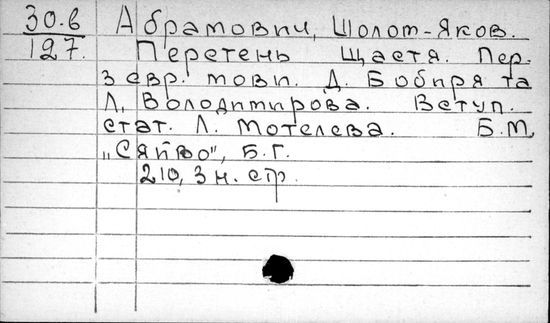 30.в
127.
Абрамович, Шолом-Яков.
Перстень щастя. Пер.
з евр. мови. Д. Бобиря та
Л. Володимирова. Вступ.
стат. Л. Мотелева. Б.М,
„Сяйво", Б.Г.
210, 3 н. стр.